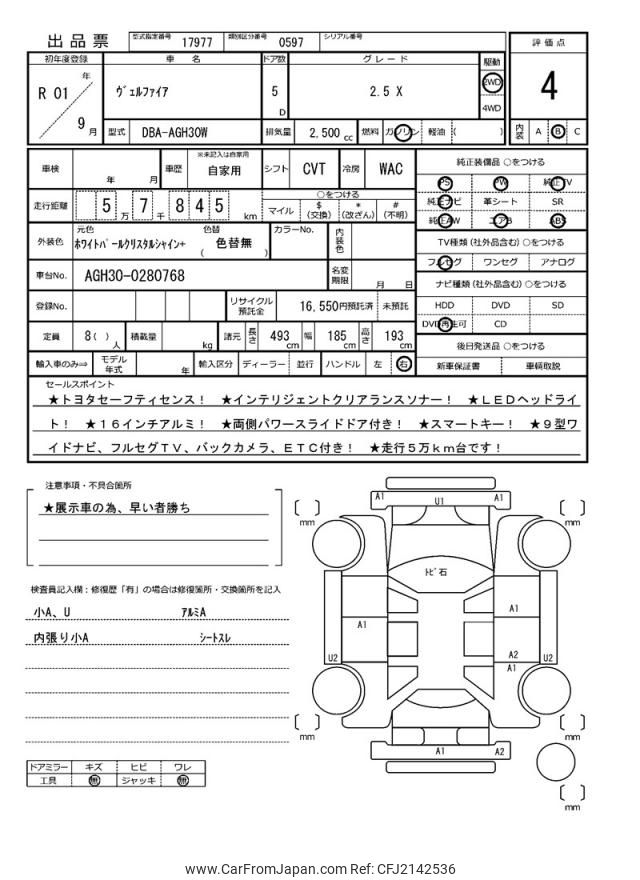 出品票 型式指定番号 17977 類別区分番号 0597 シリアル番号
初年度登録 車名 ドア数 グレード 駆動 評価点
R 01 年 9 月 ヴェルファイア 5 D 2.5 X 2WD 4WD 4
型式 DBA-AGH30W 排気量 2,500 cc 燃料 ガソリン 軽油 ( ) 内装 A B C
車検 年 月 車歴 ※未記入は自家用 自家用 シフト CVT 冷房 WAC
純正装備品 ○をつける
PS PW 純正TV
純正ナビ 革シート SR
純正AW エアB ABS
走行距離 5 万 7 千 8 4 5 km
○をつける
マイル $ (交換) * (改ざん) # (不明)
外装色 元色 ホワイトパールクリスタルシャイン+ 色替 色替無 ( ) カラーNo. 内装色
TV種類 (社外品含む) ○をつける
フルセグ ワンセグ アナログ
車台No. AGH30-0280768 名変期限 月 日
ナビ種類 (社外品含む) ○をつける
HDD DVD SD
DVD再生可 CD
登録No. リサイクル預託金 16,550円預託済 未預託
定員 8( ) 人 積載量 kg 諸元 長さ 493 cm 幅 185 cm 高さ 193 cm
後日発送品 ○をつける
新車保証書 車輌取説
輸入車のみ⇨ モデル年式 年 輸入区分 ディーラー 並行 ハンドル 左 右
セールスポイント
★トヨタセーフティセンス！ ★インテリジェントクリアランスソナー！ ★ＬＥＤヘッドライ
ト！ ★１６インチアルミ！ ★両側パワースライドドア付き！ ★スマートキー！ ★９型ワ
イドナビ、フルセグＴＶ、バックカメラ、ＥＴＣ付き！ ★走行５万ｋｍ台です！
注意事項・不具合箇所
★展示車の為、早い者勝ち
検査員記入欄：修復歴「有」の場合は修復箇所・交換箇所を記入
小A、U ｱﾙﾐA
内張り小A ｼｰﾄｽﾚ
ドアミラー キズ ヒビ ワレ
工具 無 ジャッキ 無
A1 U1 A1
mm mm
ﾄﾋﾞ石
A1 A1
U2 A2 U2
A1
mm mm
A1 A2
mm
www.CarFromJapan.com Ref: CFJ2142536